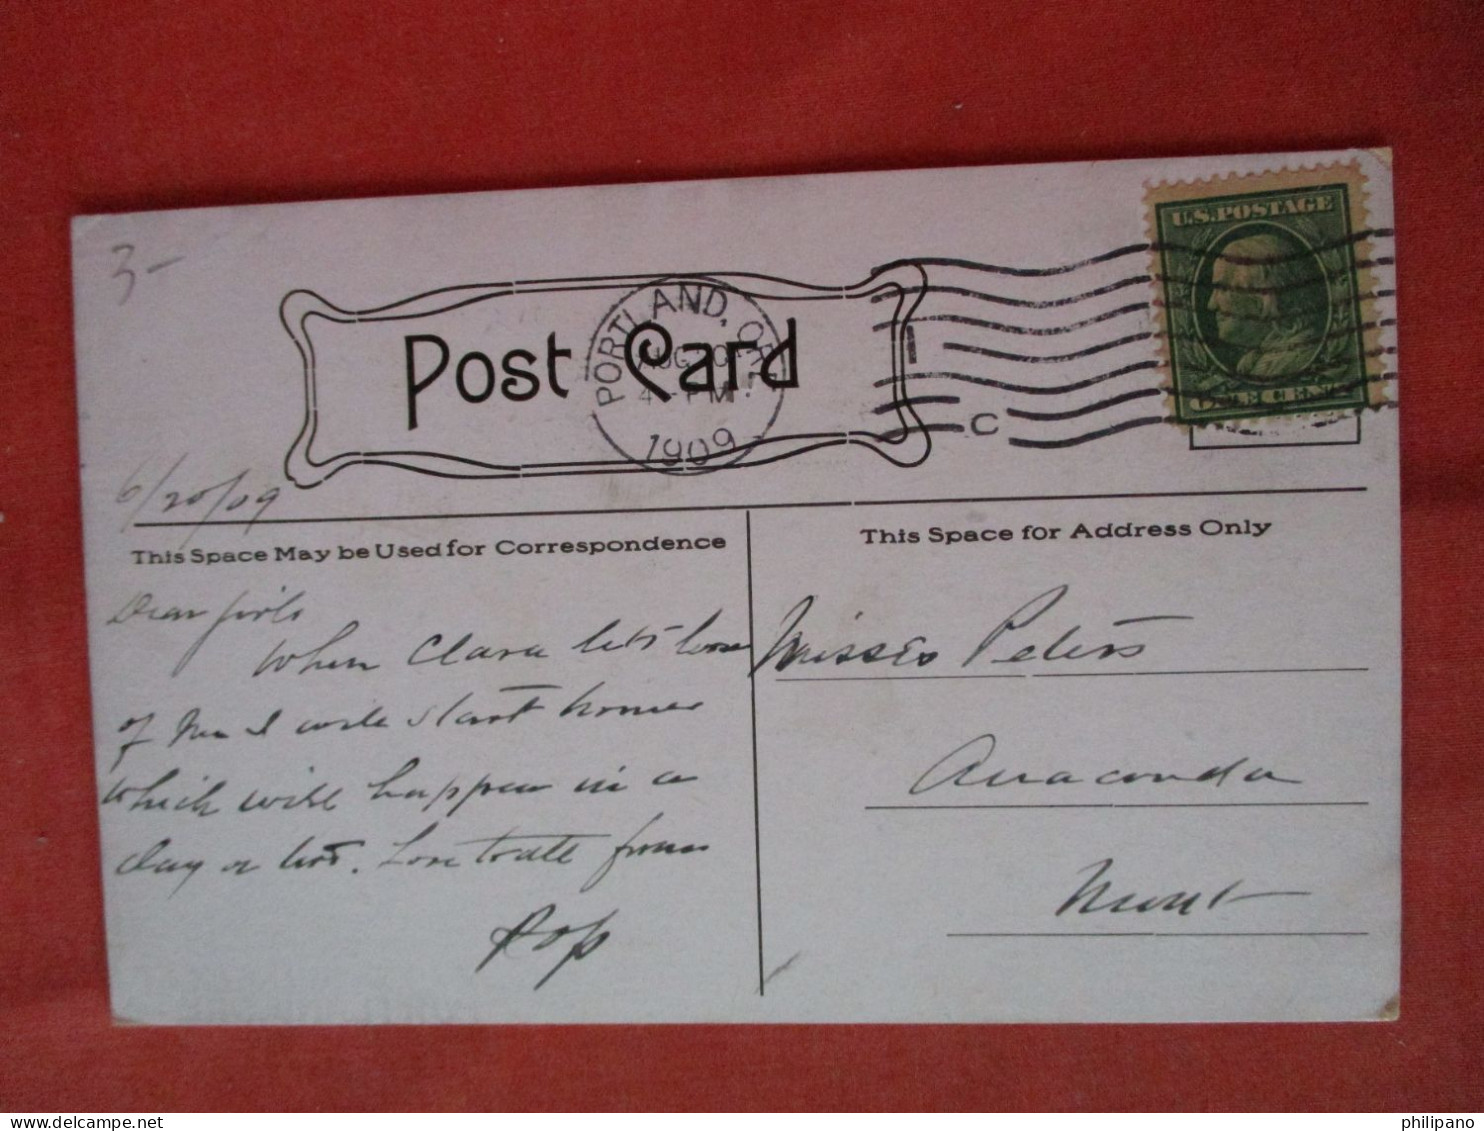 3-
Post Card
PORTLAND, ORE.
AUG 20
4 - PM
1909
C
U.S. POSTAGE
ONE CENT
6/20/09
This Space May be Used for Correspondence
This Space for Address Only
Dear girls
When Clara lets loose
of me I will start home
which will happen in a
day or two. Love to all from
Pop
Misses Peters
Anaconda
Mont
www.delcampe.net
philipano